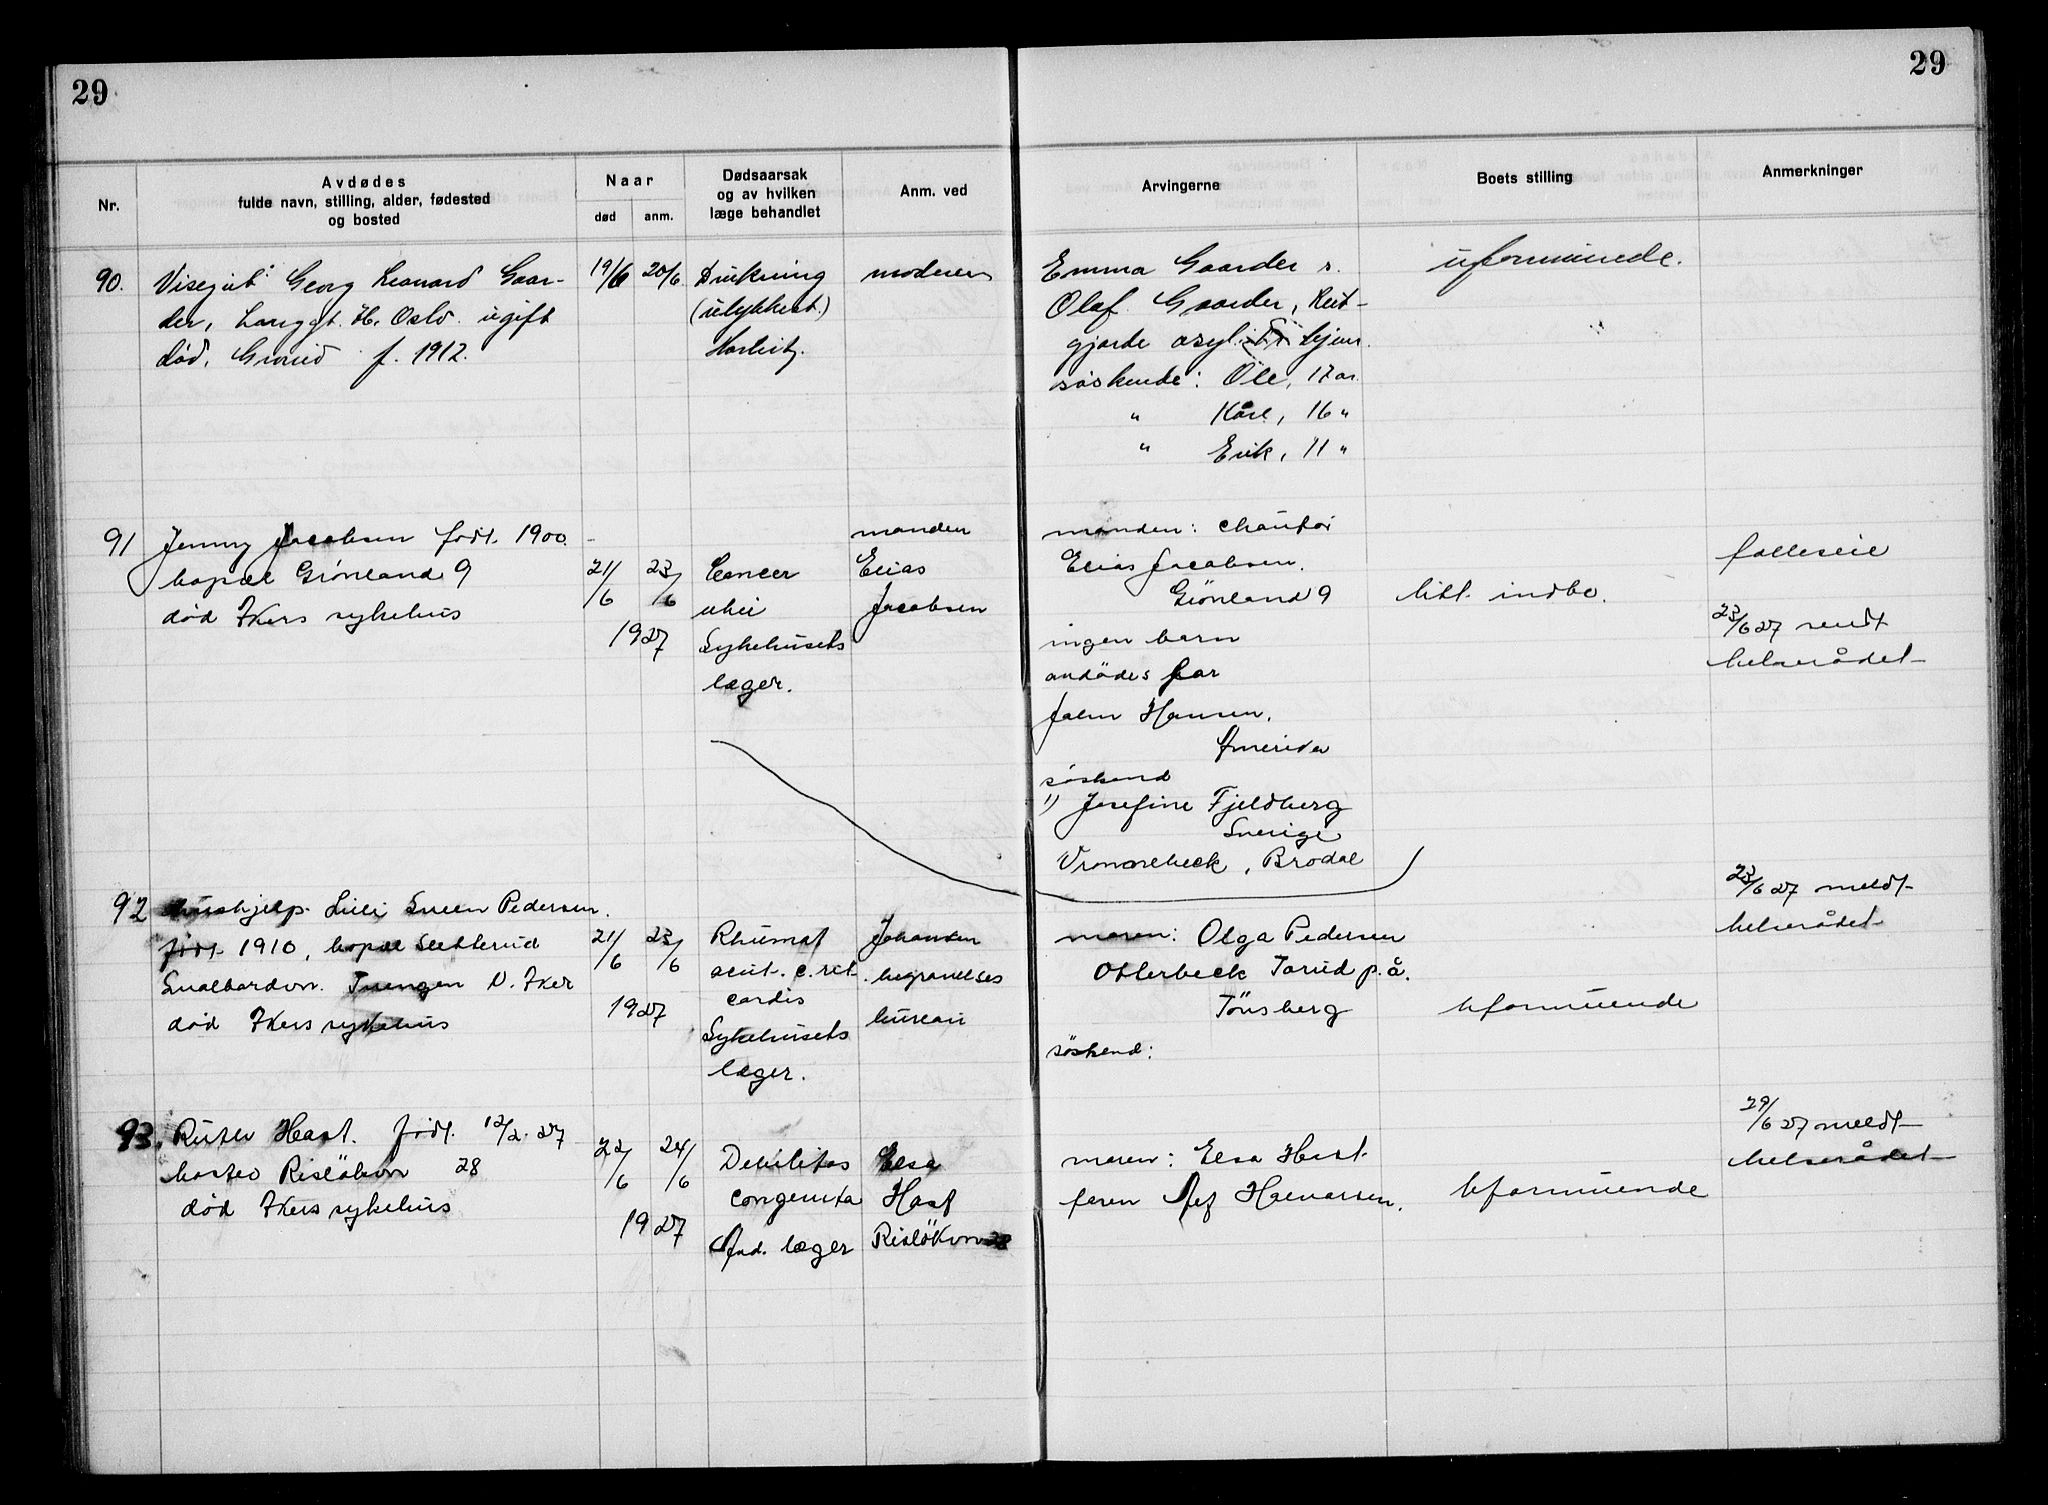 29
29
Nr.
Avdødes
fulde navn, stilling, alder, fødested
og bosted
Naar
død
anm.
Dødsaarsak
og av hvilken
læge behandlet
Anm. ved
Arvingerne
Boets stilling
Anmerkninger
90. Visergut: Georg Leonard Gaar-
der, Langgt. Oslo. ugift
død, Grorud f. 1912.
19/6 20/6
Drukning
(ulykkest.)
moderen
Emma Gaarder
Olaf Gaarder,
gjorde asyl
søskende: Ole, 17 år
" Kåre, 16 "
" Erik, 11 "
uformuende.
91 Jenny Jacobsen født 1900.
bopæl Grönland 9
død Akers sykehus
21/6 23/6
1927
Cancer
uteri
Sykehusets
læger.
manden
Elias
Jacobsen
manden: chauför
Elias Jacobsen.
Grönland 9
ingen barn
avdödes far
John Hansen.
Amerika
söskend
1) Josefine Fjeldberg
Sverige
Brodal
litt indbo.
felleseie
23/6 27 sendt
helserådet
92 Hushjelp. Lilli Sveen Pedersen.
født 1910, bopæl Sletterud
Tveugen V. Aker
død Akers sykehus
21/6 23/6
1927
Rhumat
acut. c. vit
cordis
Sykehusets
læger.
Johansen
begravelses
bureau
moren: Olga Pedersen
Otterbeck Torud p.å.
Tönsberg
söskend:
Uformuende
23/6 27 meldt
helserådet
93. født 12/2. 27
bosted Risløkvn 28
død Akers sykehus
22/6 24/6
1927
Debilitas
congenita
And. læger
Elsa
Hast
Risløkvn 28
moren: Elsa Hast
faren Alf Halvorsen.
Uformuende
29/6 27 meldt
helserådet